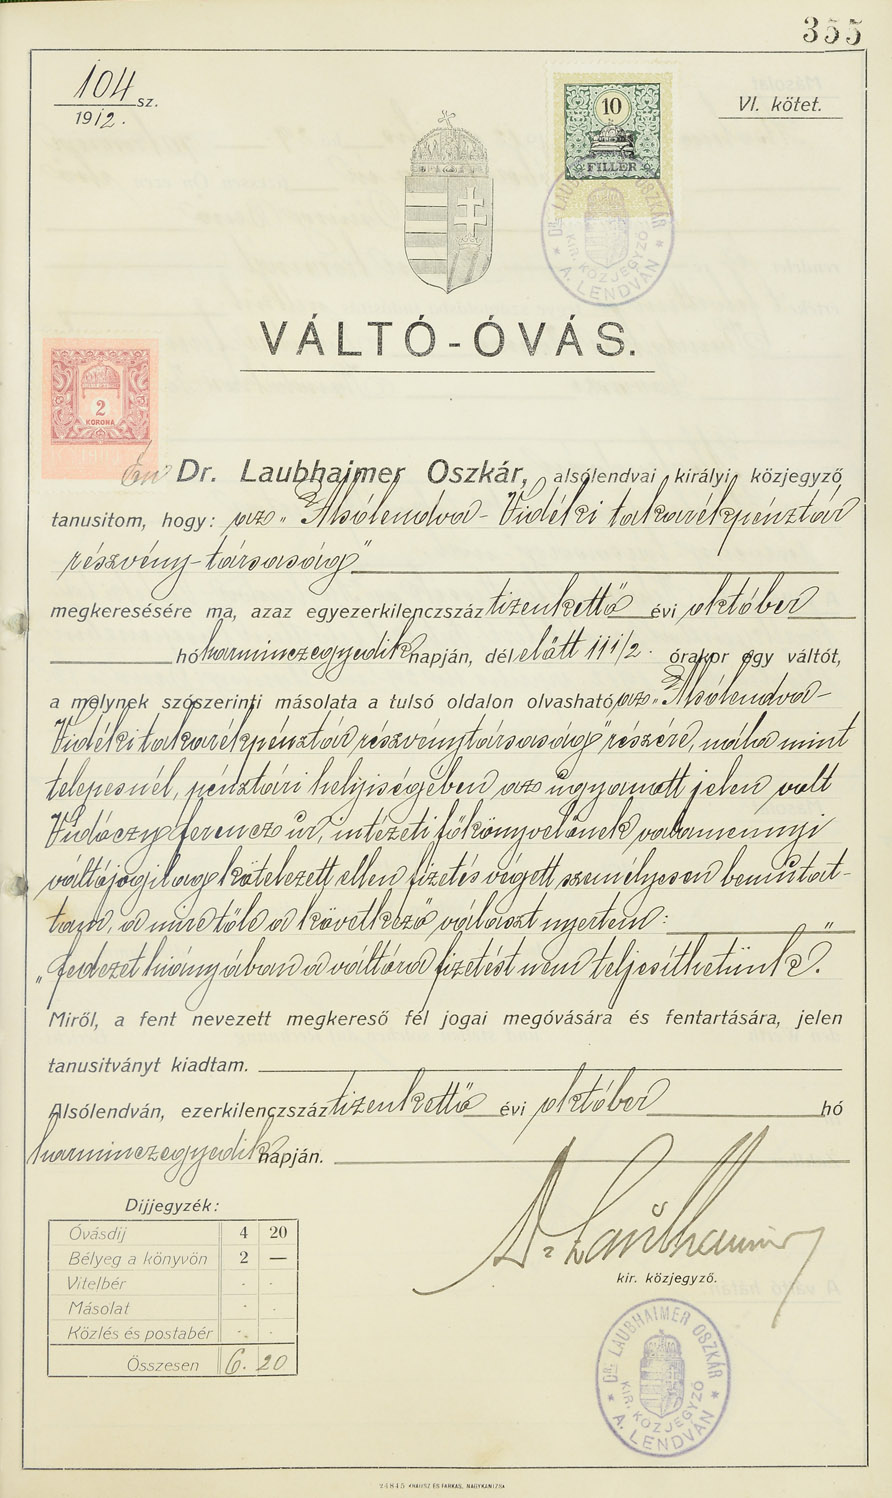 355
104 sz.
1912.
VI. kötet.
10
FILLÉR
DR. LAUBHAIMER OSZKÁR
KIR. KÖZJEGYZŐ
* A. LENDVÁN *
VÁLTÓ-ÓVÁS.
2
KORONA
Én Dr. Laubhaimer Oszkár, alsólendvai királyi közjegyző
tanusitom, hogy: az „Alsólendva-Vidéki takarékpénztár
részvény-társaság"
megkeresésére ma, azaz egyezerkilenczszáz tizenkettő évi október
hó harminczegyedik napján, dél előtt 11 1/2. órakor egy váltót,
a melynek szószerinti másolata a tulsó oldalon olvasható, az „Alsólendva-
Vidéki takarékpénztár részvénytársaság" részére, nála mint
telepesnél, pénztári helyiségében az ugyanott jelen volt
Vidóczy Ferencz úr, intézeti főkönyvelőnek valamennyi
váltójogilag kötelezett ellen fizetés végett személyesen bemutat-
tam, a mire tőle a következő választ nyertem:
„fedezet hiányában a váltóra fizetést nem teljesíthetünk".
Miről, a fent nevezett megkereső fél jogai megóvására és fentartására, jelen
tanusitványt kiadtam.
Alsólendván, ezerkilenczszáz tizenkettő évi október hó
harminczegyedik napján.
Dr Laubhaimer
kir. közjegyző.
Dijjegyzék:
Óvásdij 4 20
Bélyeg a könyvön 2 —
Vitelbér - -
Másolat - -
Közlés és postabér - -
Összesen 6. 20
DR. LAUBHAIMER OSZKÁR
KIR. KÖZJEGYZŐ
* A. LENDVÁN *
24845 KRAUSZ ÉS FARKAS, NAGYKANIZSA